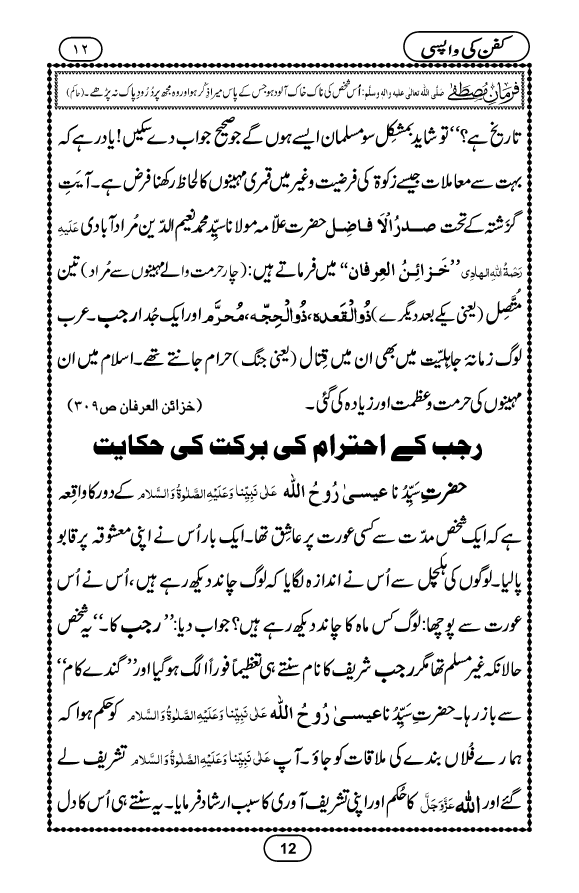 کفن کی واپسی
۱۲
فرمانِ مصطفٰے صلَّی اللہ تعالٰی علیہ واٰلہٖ وسلَّم: اُس شخص کی ناک خاک آلود ہو جس کے پاس میرا ذِکر ہو اور وہ مجھ پر دُرُودِ پاک نہ پڑھے۔ (حاکم)
تاریخ ہے؟‘‘ تو شاید بمشکِل سو مسلمان ایسے ہوں گے جو صحیح جواب دے سکیں! یاد رہے کہ
بہت سے معاملات جیسے زکوٰۃ کی فرضیت وغیرہ میں قمری مہینوں کا لحاظ رکھنا فرض ہے۔ آیتِ
گزشتہ کے تحت صدرُ الْاَفاضِل حضرت علّامہ مولانا سیِّد محمد نعیم الدّین مُراد آبادی عَلَیْہِ
رَحمَۃُ اللہِ الہادِی ’’خَزائِنُ العِرفان‘‘ میں فرماتے ہیں: (چار حرمت والے مہینوں سے مُراد) تین
مُتَّصِل (یعنی یکے بعد دیگرے) ذُوالْقَعدہ، ذُوالْحِجّہ، مُحرَّم اور ایک جُدا رجب۔ عرب
لوگ زمانۂ جاہلِیّت میں بھی ان میں قِتال (یعنی جنگ) حرام جانتے تھے۔ اسلام میں ان
مہینوں کی حرمت و عظمت اور زیادہ کی گئی۔ (خزائن العرفان ص۳۰۹)
رجب کے احترام کی برکت کی حکایت
حضرتِ سیِّدُنا عیسیٰ رُوحُ اللہ عَلٰی نَبِیِّنا وَعَلَیْہِ الصَّلٰوۃُ وَالسَّلام کے دور کا واقِعہ
ہے کہ ایک شخص مدّت سے کسی عورت پر عاشق تھا۔ ایک بار اُس نے اپنی معشوقہ پر قابو
پا لیا۔ لوگوں کی ہلچل سے اُس نے اندازہ لگایا کہ لوگ چاند دیکھ رہے ہیں، اُس نے اُس
عورت سے پوچھا: لوگ کس ماہ کا چاند دیکھ رہے ہیں؟ جواب دیا: ’’رجب کا۔‘‘ یہ شخص
حالانکہ غیر مسلم تھا مگر رجب شریف کا نام سنتے ہی تعظیماً فوراً الگ ہو گیا اور ’’گندے کام‘‘
سے باز رہا۔ حضرتِ سیِّدُنا عیسیٰ رُوحُ اللہ عَلٰی نَبِیِّنا وَعَلَیْہِ الصَّلٰوۃُ وَالسَّلام کو حکم ہوا کہ
ہمارے فُلاں بندے کی ملاقات کو جاؤ۔ آپ عَلٰی نَبِیِّنا وَعَلَیْہِ الصَّلٰوۃُ وَالسَّلام تشریف لے
گئے اور اللہ عَزَّوَجَلَّ کا حُکم اور اپنی تشریف آوری کا سبب ارشاد فرمایا۔ یہ سنتے ہی اُس کا دل
12